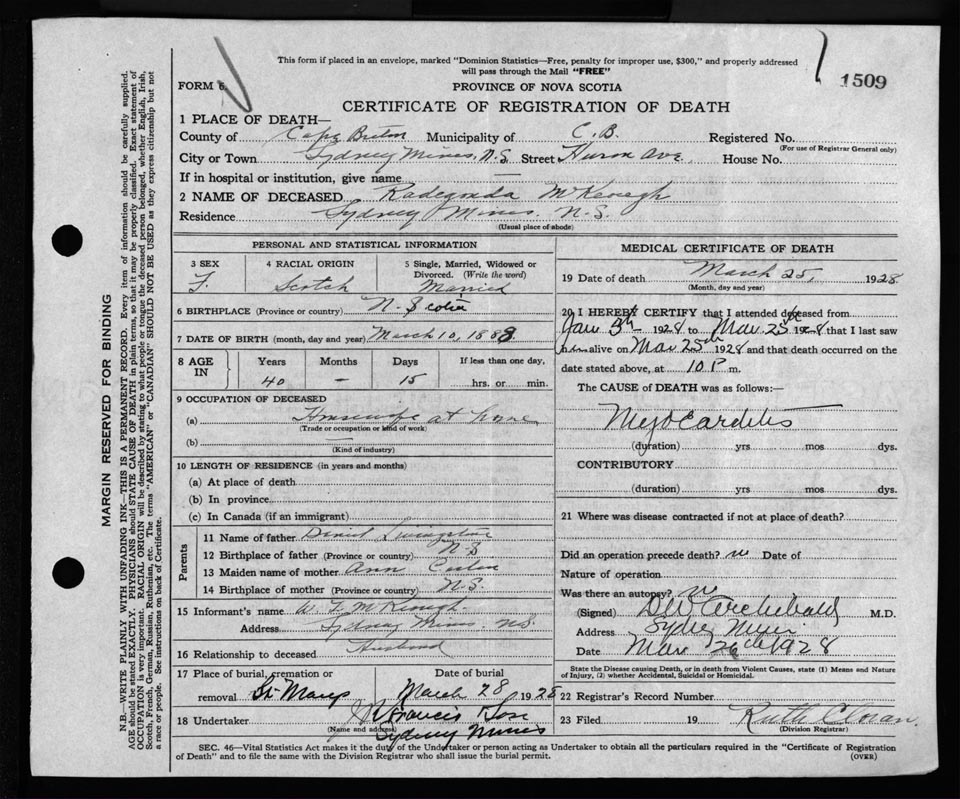 This form if placed in an envelope, marked "Dominion Statistics—Free, penalty for improper use, $300," and properly addressed
will pass through the Mail "FREE"
1509
FORM 6.
PROVINCE OF NOVA SCOTIA
CERTIFICATE OF REGISTRATION OF DEATH
1 PLACE OF DEATH—
County of Cape Breton Municipality of C.B. Registered No.
(For use of Registrar General only)
City or Town Sydney Mines, N.S. Street Huron Ave. House No.
If in hospital or institution, give name —
2 NAME OF DECEASED Radegonda McKeough
Residence Sydney Mines. N.S.
(Usual place of abode)
PERSONAL AND STATISTICAL INFORMATION
3 SEX 4 RACIAL ORIGIN 5 Single, Married, Widowed or
Divorced. (Write the word)
F. Scotch Married
6 BIRTHPLACE (Province or country) N. Scotia
7 DATE OF BIRTH (month, day and year) March 10, 1888
8 AGE IN Years Months Days If less than one day,
40 — 15 hrs. or min.
9 OCCUPATION OF DECEASED
(a) Housewife at home
(Trade or occupation or kind of work)
(b) —
(Kind of industry)
10 LENGTH OF RESIDENCE (in years and months)
(a) At place of death
(b) In province
(c) In Canada (if an immigrant)
Parents
11 Name of father Livingstone
12 Birthplace of father (Province or country) N.S
13 Maiden name of mother Ann
14 Birthplace of mother (Province or country) N.S.
15 Informant's name W. F. McKeough.
Address Sydney Mines, N.S.
16 Relationship to deceased Husband
17 Place of burial, cremation or Date of burial
removal St Marys March 28 1928
18 Undertaker Francis & Son
(Name and address)
Sydney Mines
MEDICAL CERTIFICATE OF DEATH
19 Date of death March 25, 1928
(Month, day and year)
20 I HEREBY CERTIFY that I attended deceased from
Jan 5th 1928 to Mar. 25th 1928 that I last saw
her alive on Mar 25th 1928 and that death occurred on the
date stated above, at 10 P m.
The CAUSE of DEATH was as follows:—
Myocarditis
(duration) yrs mos dys.
CONTRIBUTORY
(duration) yrs mos dys.
21 Where was disease contracted if not at place of death?
Did an operation precede death? no Date of
Nature of operation
Was there an autopsy? no
(Signed) DW Archibald M.D.
Address Sydney Mines
Date Mar 26th 1928
State the Disease causing Death, or in death from Violent Causes, state (1) Means and Nature
of Injury, (2) whether Accidental, Suicidal or Homicidal.
22 Registrar's Record Number
23 Filed 19 Ruth
(Division Registrar)
SEC. 46—Vital Statistics Act makes it the duty of the Undertaker or person acting as Undertaker to obtain all the particulars required in the "Certificate of Registration
of Death" and to file the same with the Division Registrar who shall issue the burial permit.
(OVER)
MARGIN RESERVED FOR BINDING
N.B.—WRITE PLAINLY WITH UNFADING INK—THIS IS A PERMANENT RECORD. Every item of information should be carefully supplied.
AGE should be stated EXACTLY. PHYSICIANS should STATE CAUSE OF DEATH in plain terms, so that it may be properly classified. Exact statement of
OCCUPATION is very important. RACIAL ORIGIN will be described by stating to what people or tongue the deceased person belonged, whether English, Irish,
Scotch, French, German, Russian, Ruthenian, etc. The terms "AMERICAN" or "CANADIAN" SHOULD NOT BE USED as they express citizenship but not
a race or people. See instructions on back of Certificate.